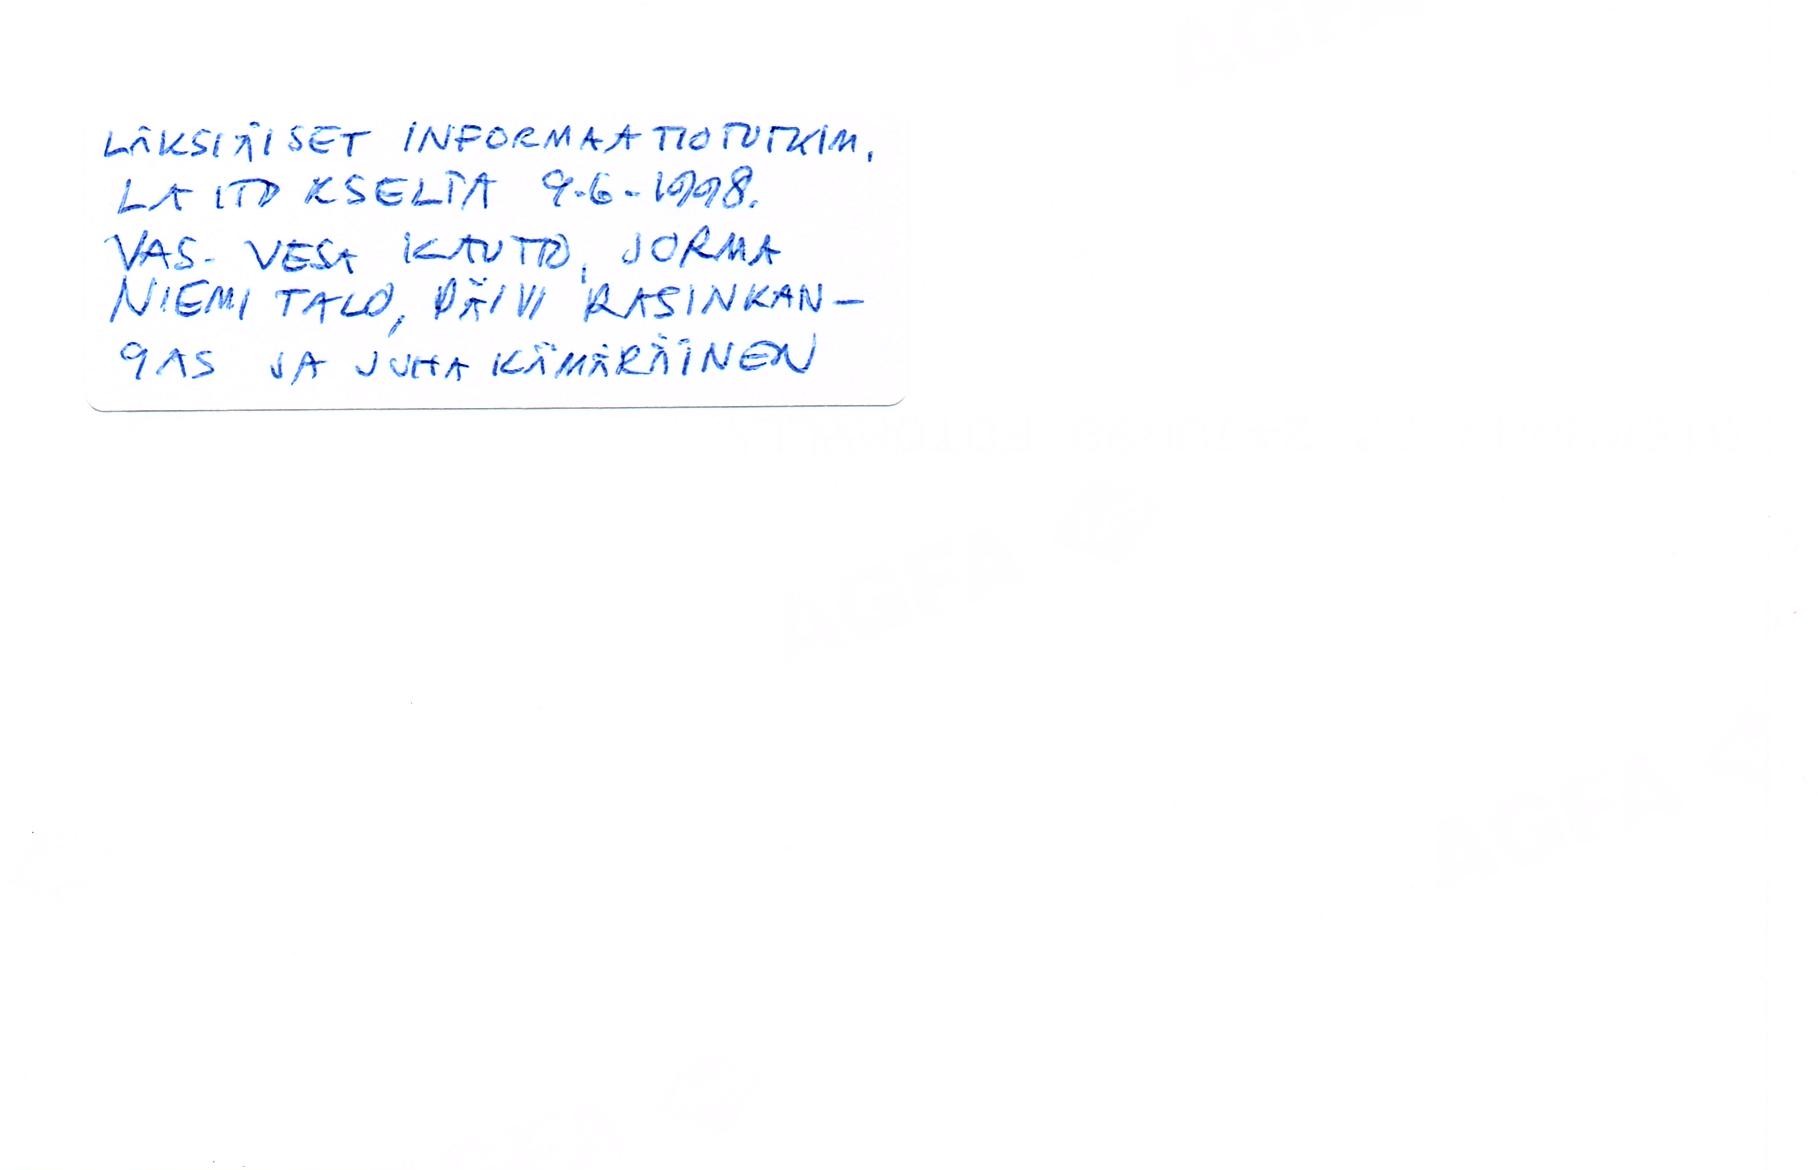 LÄKSIÄISET INFORMAATIOTUTKIM.
LAITOKSELTA 9.6-1998.
VAS. VESA KAUTTO, JORMA
NIEMITALO, PÄIVI RASINKAN-
GAS JA JUHA KÄMÄRÄINEN
AGFA
AGFA